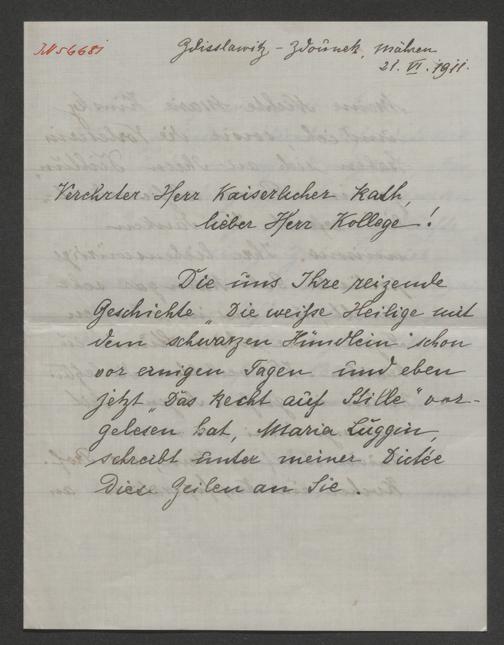 IN 56681
Zdisslawitz - Zdounek, Mähren
21. VI. 1911.
Verehrter Herr Kaiserlicher Rath,
lieber Herr Kollege!
Die uns Ihre reizende
Geschichte „Die weiße Heilige mit
dem schwarzen Hündlein" schon
vor einigen Tagen und eben
jetzt „Das Recht auf Stille" vor-
gelesen hat, Maria Luggin,
schreibt unter meiner Dictée
diese Zeilen an Sie.